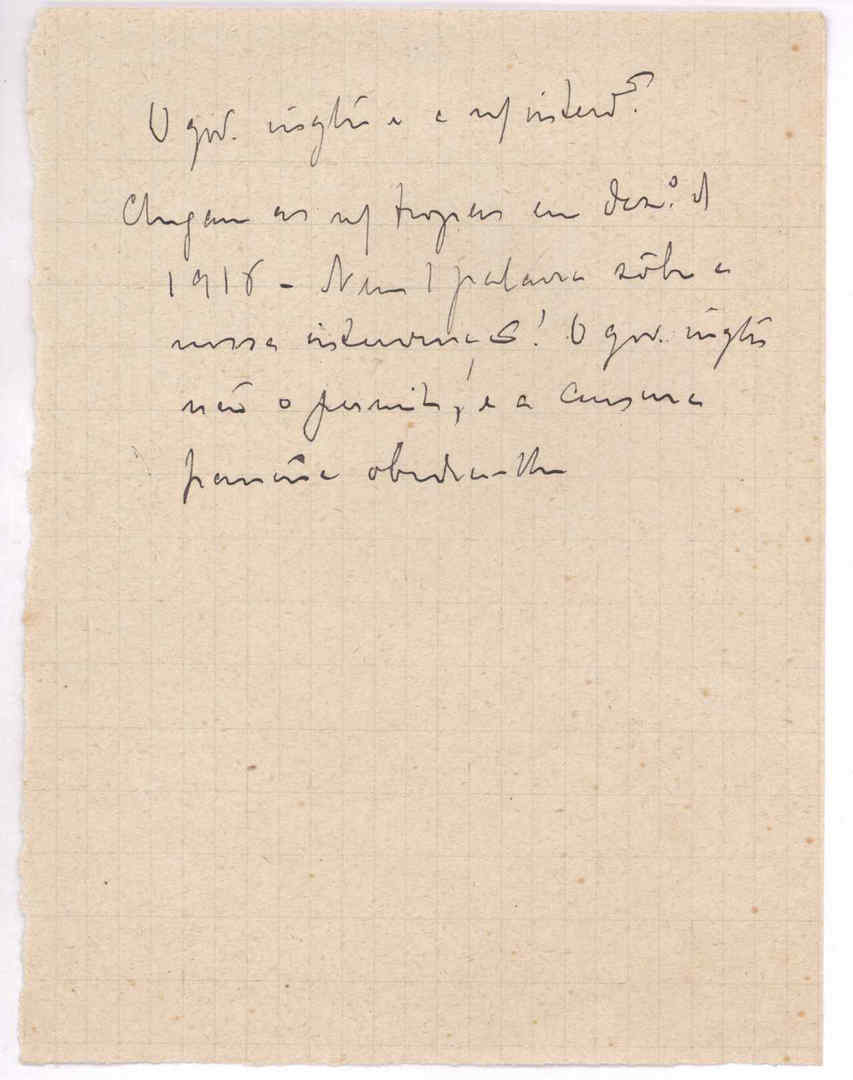 O gov. inglês e a n/ interv.ão
Chegam as n/ tropas em dez.º d
1916 - Nem 1 palavra sôbre a
nossa intervenção! O gov. inglês
não o permite, e a censura
francesa obedece-lhe